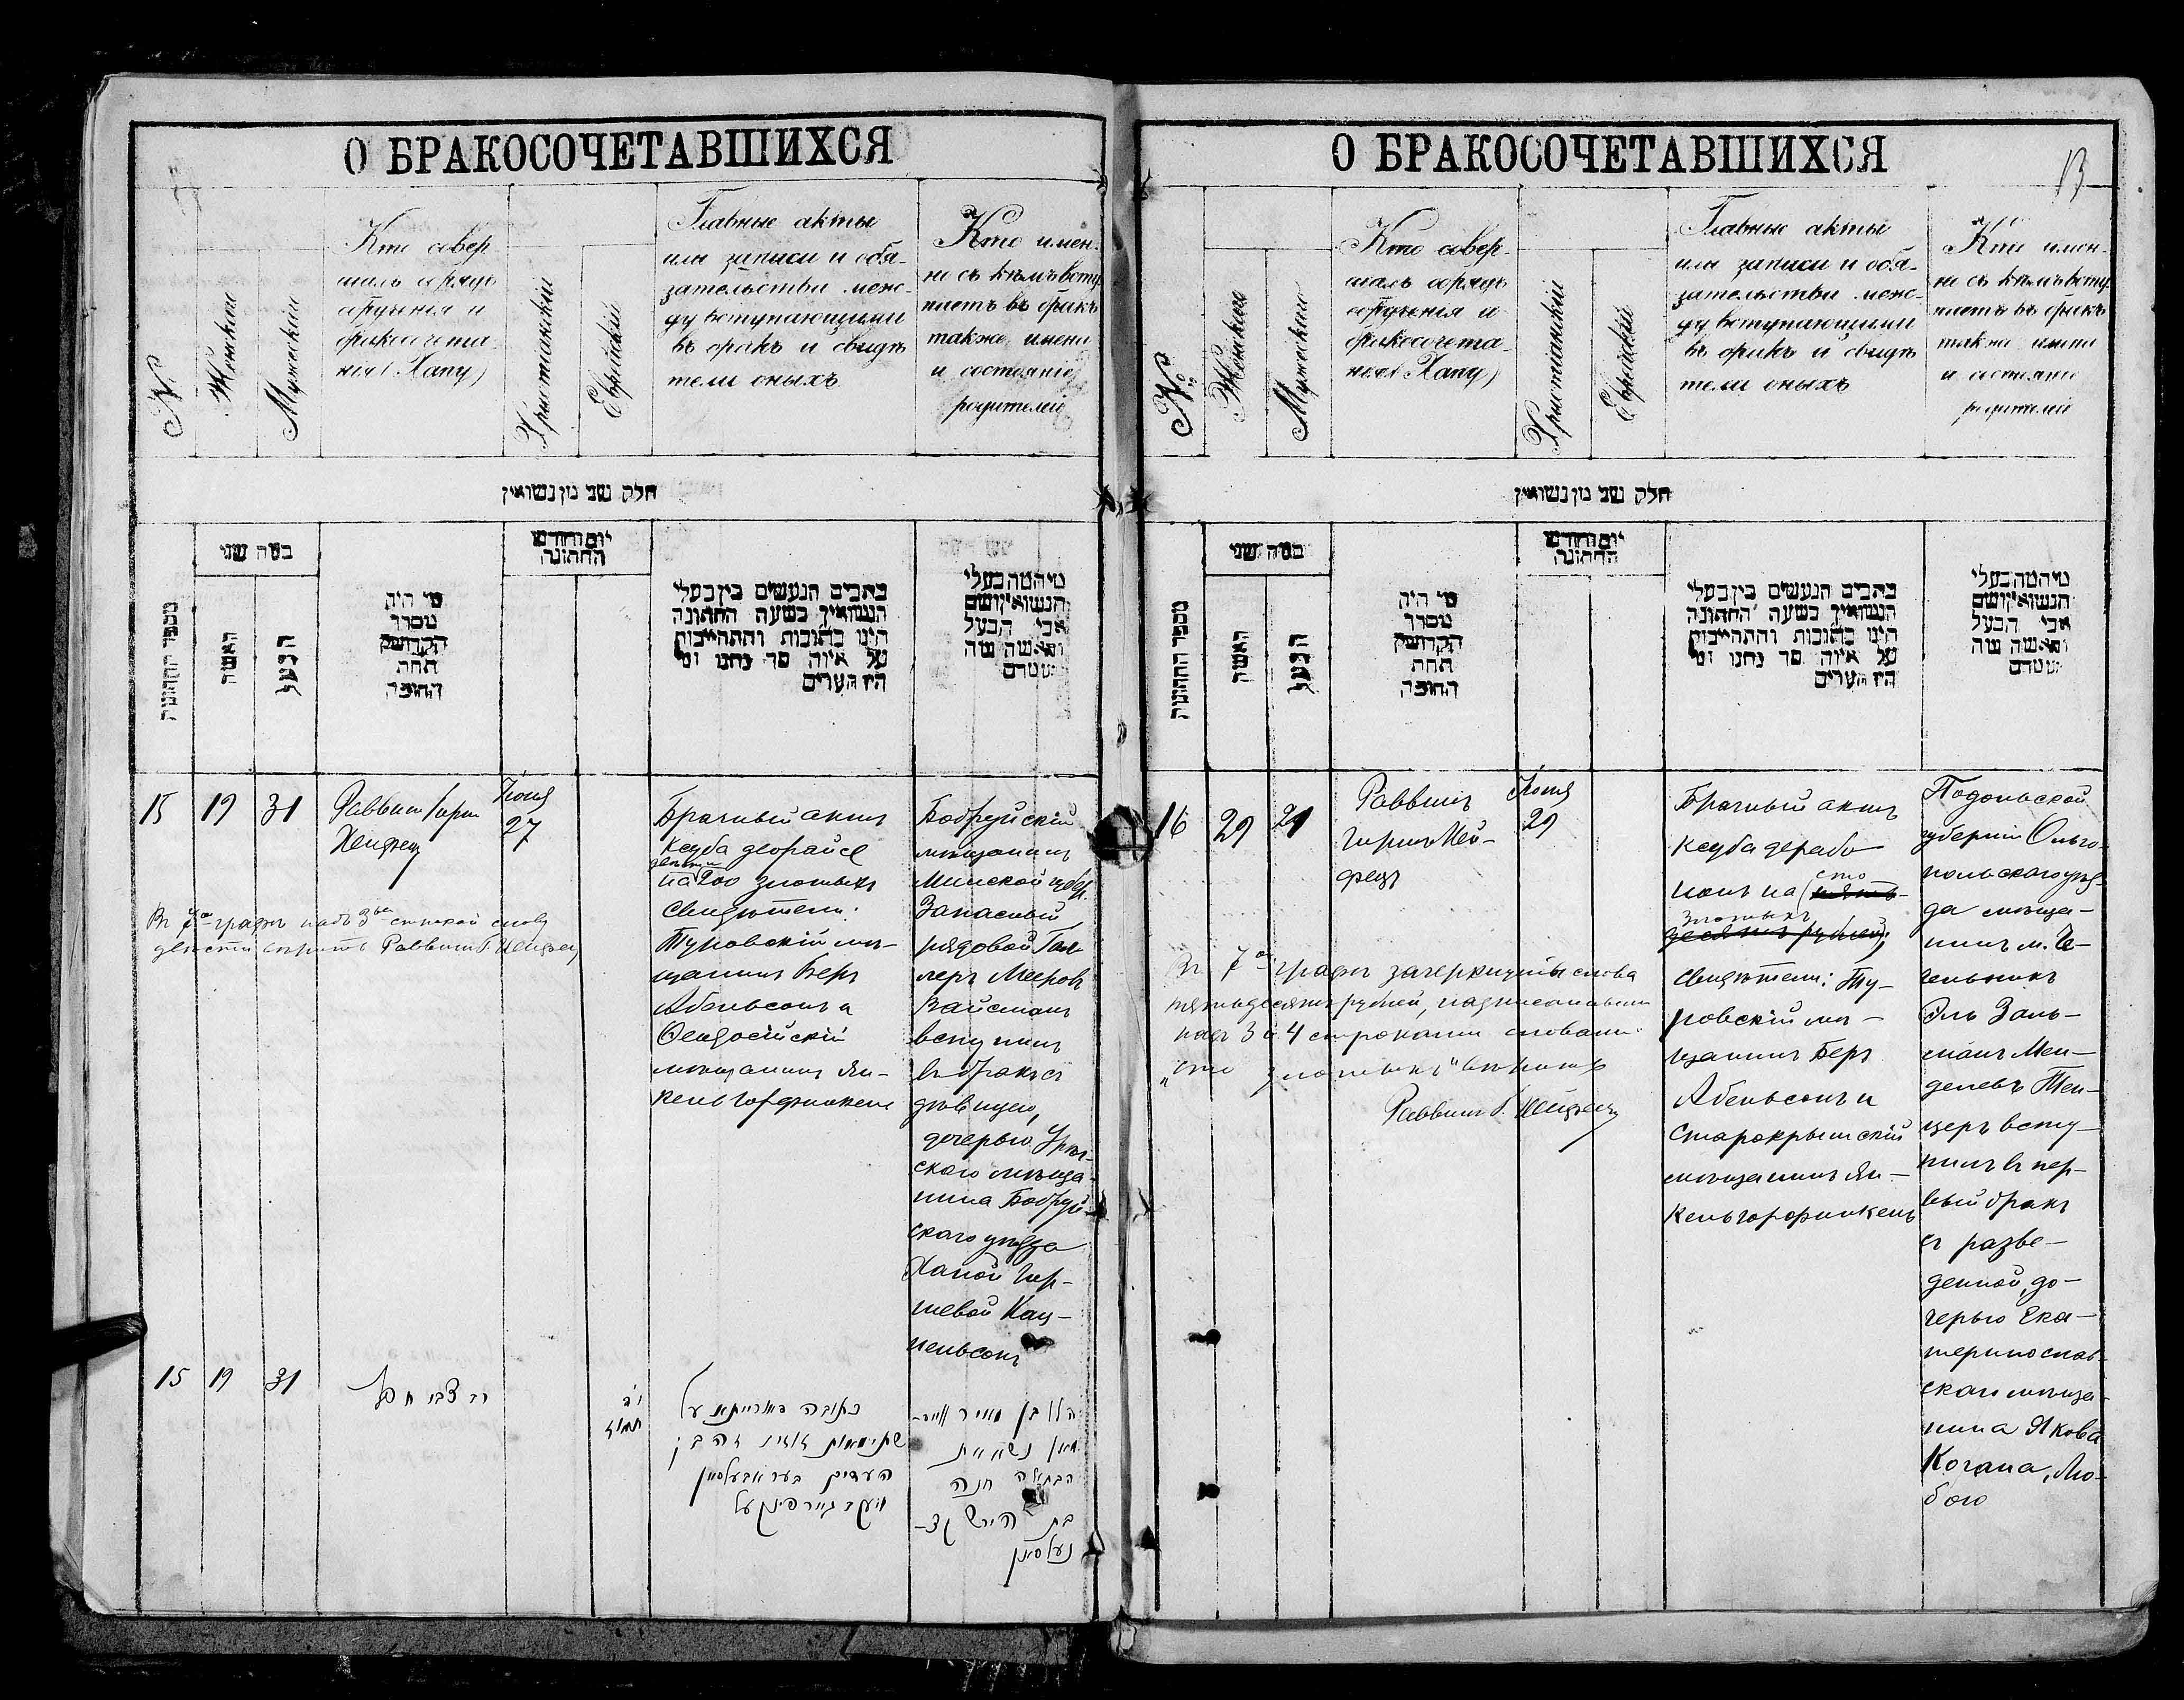 О БРАКОСОЧЕТАВШИХСЯ
№
Женскаго
Мужескаго
Кто совер
шалъ обрядъ
обрученія и
бракосочета-
нія (Хапу)
Христіанскій
Еврейскій
Главные акты
или записи и обя-
зательства меж-
ду вступающими
въ бракъ и свидѣ
тели оныхъ
Кто имен-
но съ кѣмъ всту
паетъ въ бракъ
также имена
и состояніе
родителей
חלק שני מן נשואין
מספר החתונות
כמה שני
האשה
הבעל
מי היה
מסדר
הקדושין
תחת
החופה
יום וחודש
החתונה
כתבים הנעשים בין בעלי
הנשואין בשעה החתונה
היינו כתובות והתחייבות
על איזה סך נתנו ומי
היו העדים
מי המה בעלי
הנשואין ושם
אבי הבעל
והאשה
15 19 31
Раввинъ Гирш
Хейфец
Іюня
27
Брачный актъ
Ксуба деорайсе
двѣсти
на 200 злотыхъ
Свидѣтели:
Туровскій мѣ-
щанинъ Беръ
Абельсонъ и
Ѳеодосійскій
мѣщанинъ Ян-
кель Горфинкель
Бобруйскій
мѣщанинъ
Минской губер.
Запасный
рядовой
Мееровъ
Вайсманъ
вступилъ
въ бракъ съ
дѣвицею,
дочерью
скаго мѣща-
нина Бобруй-
скаго уѣзда
Ханой Гир-
шевой Кац-
нельсонъ
Въ 7ой графѣ надъ 3ьей строкой слову
двѣсти вѣрить Раввинъ Г. Хейфец
15 19 31
י״ג
תמוז
כתובה דאורייתא על
שתי מאות זהב
העדים בער אבעלסאן
יענקל גורפינקעל
הלל בן מאיר ווייס-
מאן נשא את
הבתולה חנה
בת הירש קצ-
נעלסאן
О БРАКОСОЧЕТАВШИХСЯ
13
№
Женскаго
Мужескаго
Кто совер-
шалъ обрядъ
обрученія и
бракосочета-
нія (Хапу)
Христіанскій
Еврейскій
Главные акты
или записи и обя-
зательства меж-
ду вступающими
въ бракъ и свидѣ
тели оныхъ
Кто имен-
но съ кѣмъ всту
паетъ въ бракъ
также имена
и состояніе
родителей
חלק שני מן נשואין
מספר החתונות
כמה שני
האשה
הבעל
מי היה
מסדר
הקדושין
תחת
החופה
יום וחודש
החתונה
כתבים הנעשים בין בעלי
הנשואין בשעה החתונה
היינו כתובות והתחייבות
על איזה סך נתנו ומי
היו העדים
מי המה בעלי
הנשואין ושם
אבי הבעל
והאשה
16 29 21
Раввинъ
Гиршъ Хей-
фецъ
Іюня
29
Брачный актъ
Ксуба дерабо
нонъ на сто
пять-
злотыхъ
десятъ рублей;
Свидѣтели: Ту-
ровскій мѣ-
щанинъ Беръ
Абельсонъ и
Старокрымскій
мѣщанинъ Ян-
кель Горфинкель
Подольской
губерніи Ольго-
польскаго уѣз-
да мѣща-
нинъ м. Че-
чельникъ
Эль Заль-
манъ Мен-
делевъ Тен-
церъ всту-
пилъ въ пер-
вый бракъ
съ разве-
денной, до-
черью Ека-
теринослав-
скаго мѣща-
нина Якова
Когана, Лю-
бою
Въ 7ой графѣ зачеркнутыя слова
пятьдесятъ рублей, надписаннымъ
надъ 3 и 4 строками словами
„сто злотыхъ" вѣрить
Раввинъ Г. Хейфецъ